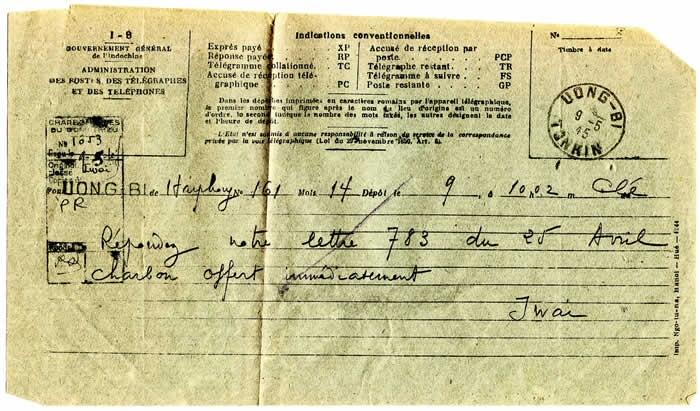 I-8
GOUVERNEMENT GÉNÉRAL
de l'Indochine
ADMINISTRATION
DES POSTES, DES TÉLÉGRAPHES
ET DES TÉLÉPHONES
Indications conventionnelles
Exprès payé XP
Réponse payée RP
Télégramme collationné. TC
Accusé de réception télé-
graphique PC
Accusé de réception par
poste PCP
Télégraphe restant. TR
Télégramme à suivre FS
Poste restante GP
Dans les dépêches imprimées en caractères romains par l'appareil télégraphique,
le premier nombre qui figure après le nom du lieu d'origine est un numéro
d'ordre, le second indique le nombre des mots taxés, les autres désignent la date
et l'heure de dépôt.
L'Etat n'est soumis à aucune responsabilité à raison du service de la correspondance
privée par la voie télégraphique (Loi du 29 novembre 1850, Art. 6).
No
Timbre à date
UONG-BI
9-5
45
TONKIN
CHARBONNAGES
No 1053
Iwai
UONG-BI de Haiphong No 161 Mots 14 Dépôt le 9 à 10h02 m
PR
Répondez notre lettre 783 du 25 Avril
charbon offert immédiatement
Iwai
Imp. Ngo-tu-ha, Hanoi — Hué —